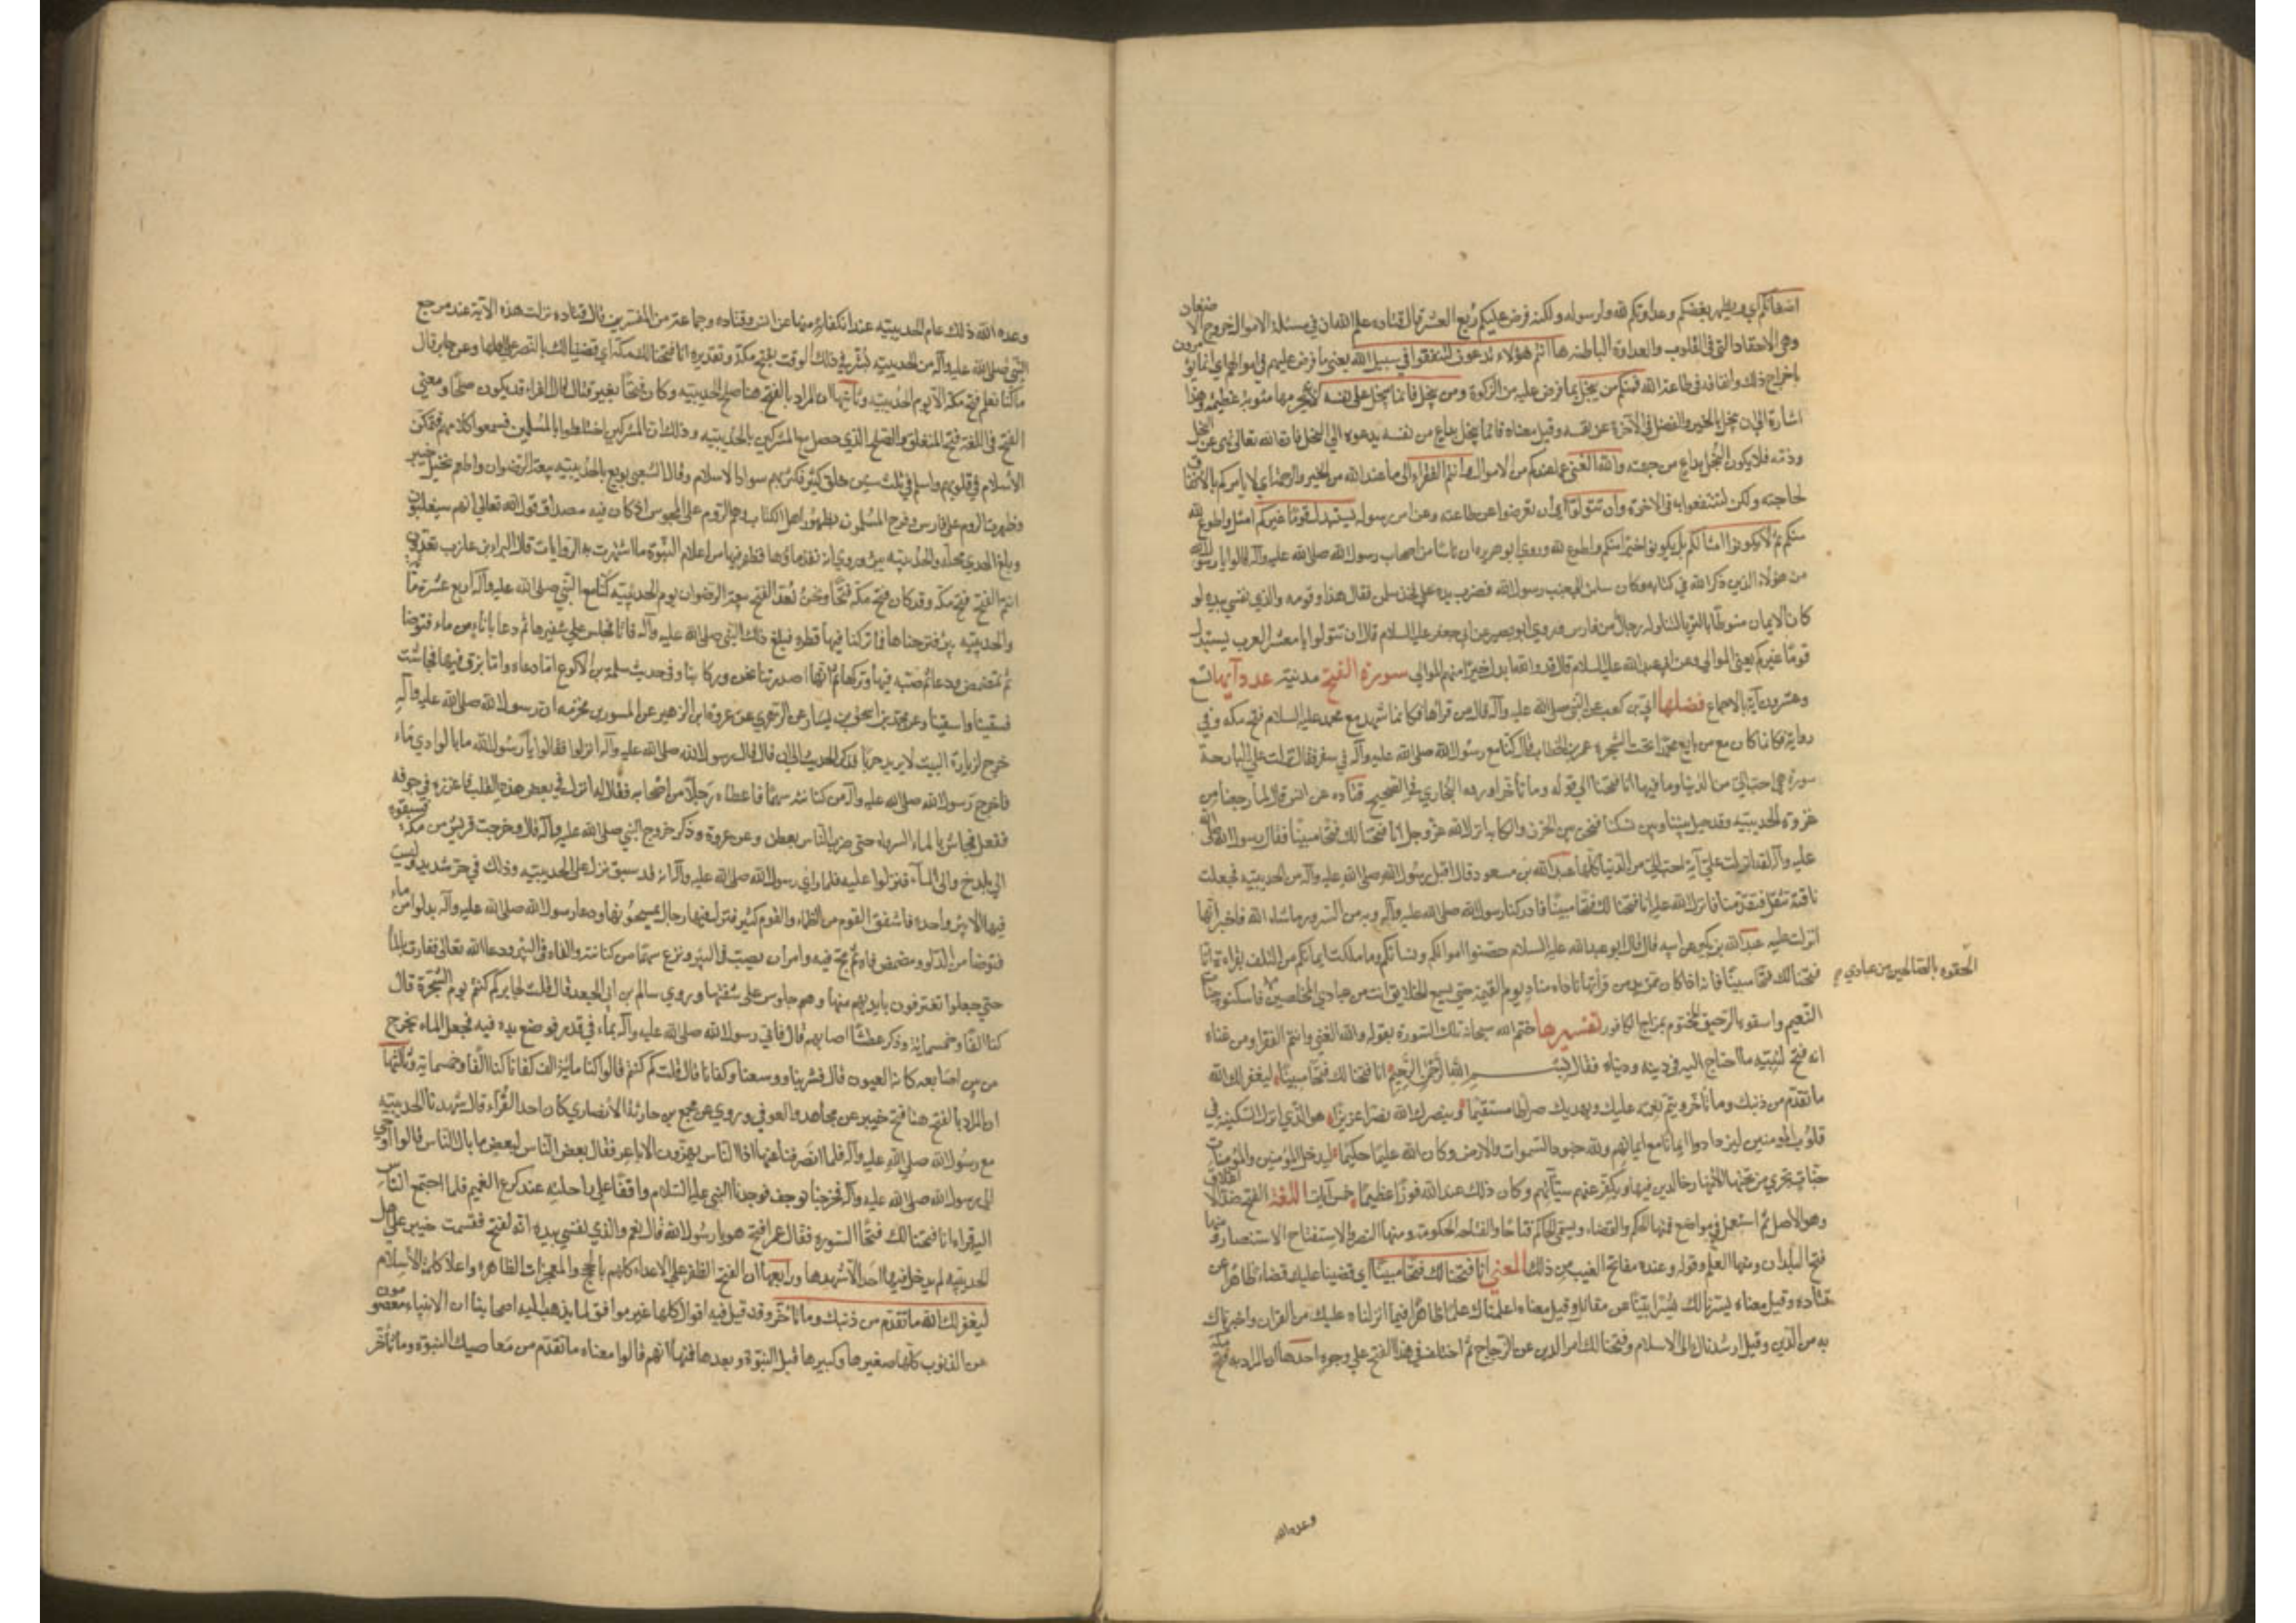 اضغانكم اي ويظهر بغضكم وعداوتكم لله ولرسوله ولكنه فرض عليكم ربع العشر قال قتاده علم الله ان في مسئلة الاموال خروج الاضغان
وهي الاحقاد التي في القلوب والعداوة الباطنه ها انتم هؤلاء تدعون لتنفقوا في سبيل الله يعني ما فرض عليهم في اموالهم اي انما تؤمرون
باخراج ذلك وانفاقه في طاعة الله فمنكم من يبخل بما فرض عليه من الزكوة ومن يبخل فانما يبخل على نفسه لانه يحرمها مثوبة عظيمة وهذا
اشارة الى ان يبخل بالخير والفضل في الآخرة عن نفسه وقيل معناه فانما يبخل بداع من نفسه يدعوه الى البخل فان الله تعالى نهى عن البخل
وذته فلا يكون البخل بداع من جهته والله الغني عما عندكم من الاموال وانتم الفقراء الى ما عند الله من الخير والرحمة اي لا يامركم بالانفاق
لحاجته ولكن لتنتفعوا به في الاخرة وان تتولوا اي ان تعرضوا عن طاعته وعن امر رسوله يستبدل قوما غيركم امثل واطوع لله
منكم ثم لا يكونوا امثالكم بل يكونوا خيرا منكم واطوع لله وروى ابو هريره ان ناسا من اصحاب رسول الله صلى الله عليه وآله قالوا يا رسول الله
من هؤلاء الذين ذكر الله في كتابه وكان سلمان الى جنب رسول الله فضرب يده على فخذ سلمان فقال هذا وقومه والذي نفسي بيده لو
كان الايمان منوطا بالثريا لتناوله رجال من فارس وروى ابو بصير عن ابي جعفر عليه السلام قال ان تتولوا يا معشر العرب يستبدل
قوما غيركم يعني الموالي وعن ابي عبد الله عليه السلام قال قد والله ابدل خيرا منهم الموالي سورة الفتح مدنية عدد آيها تسع
وعشرون آية بالاجماع فضلها ابي بن كعب عن النبي صلى الله عليه وآله قال من قراها فكانما شهد مع محمد عليه السلام فتح مكه وفي
رواية فكانما كان مع من بايع محمدا تحت الشجرة عمر بن الخطاب قال كنا مع رسول الله صلى الله عليه وآله في سفر فقال نزلت علي البارحة
سورة هي احب الي من الدنيا وما فيها انا فتحنا الى قوله وما تأخر اورده البخاري في الصحيح قتاده عن انس قال لما رجعنا من
غزوة الحديبية وقد حيل بيننا وبين نسكنا فنحن بين الحزن والكابه انزل الله عز وجل انا فتحنا لك فتحا مبينا فقال رسول الله صلى الله
عليه وآله لقد انزلت علي آية احب الي من الدنيا كلها عبد الله بن مسعود قال اقبل رسول الله صلى الله عليه وآله من الحديبيه فجعلت
ناقته تثقل فتقدمنا فانزل الله عليه انا فتحنا لك فتحا مبينا فادركنا رسول الله صلى الله عليه وآله وبه من السرور ما شاء الله فاخبر انها
انزلت عليه عبد الله بن بكير عن ابيه قال قال ابو عبد الله عليه السلام حصنوا اموالكم ونساءكم وما ملكت ايمانكم من التلف بقراءة انا
فتحنا لك فتحا مبينا فانه اذا كان ممن يدمن قراتها ناداه مناد يوم القيمة حتى يسمع الخلايق انت من عبادي المخلصين فاسكنوه جنات
الحقوه بالصالحين من عبادي
النعيم واسقوه الرحيق المختوم بمزاج الكافور تفسيرها ختم الله سبحانه تلك السورة بقوله والله الغني وانتم الفقرا ومن غناه
انه فتح لنبيه ما احتاج اليه في دينه ودنياه فقال بسم الله الرحمن الرحيم انا فتحنا لك فتحا مبينا ليغفر لك الله
ما تقدم من ذنبك وما تأخر ويتم نعمته عليك ويهديك صراطا مستقيما وينصرك الله نصرا عزيزا هو الذي انزل السكينة في
قلوب المؤمنين ليزدادوا ايمانا مع ايمانهم ولله جنود السموات والارض وكان الله عليما حكيما ليدخل المؤمنين والمؤمنات
جنات تجري من تحتها الأنهار خالدين فيها ويكفر عنهم سيآتهم وكان ذلك عند الله فوزا عظيما خمس آيات اللغة الفتح ضد الاغلاق
وهو الاصل ثم استعمل في مواضع فمنها الحكم والقضاء ويسمى الحاكم فتاحا والفتاحه الحكومة ومنها النصر والاستفتاح الاستنصار ومنها
فتح البلدان ومنها العلم وقوله وعنده مفاتح الغيب من ذلك المعنى انا فتحنا لك فتحا مبينا اي قضينا عليك قضاء ظاهرا عن
قتاده وقيل معناه يسرنا لك يسرا بينا عن مقاتل وقيل معناه اعلمناك علما ظاهرا فيما انزلناه عليك من القران واخبرناك
به من الدين وقيل ارشدناك الى الاسلام وفتحنا لك امر الدين عن الزجاج ثم اختلف في هذا الفتح على وجوه احدها ان المراد به فتح مكة
وعده الله
وعده الله ذلك عام الحديبيه عند انكفائه منها عن انس وقتاده وجماعة من المفسرين قال قتاده نزلت هذه الآية عند مرجع
النبي صلى الله عليه وآله من الحديبيه بشر في ذلك الوقت بفتح مكة وتقديره انا فتحنا لك مكة اي قضينا لك بالنصر على اهلها وعن جابر قال
ما كنا نعلم فتح مكة الا يوم الحديبيه وثانيها ان المراد بالفتح هنا صلح الحديبيه وكان فتحا بغير قتال قال الفراء قد يكون صلحا ومعنى
الفتح في اللغة فتح المنغلق والصلح الذي حصل مع المشركين بالحديبيه وذلك ان المشركين اختلطوا بالمسلمين فسمعوا كلامهم فتمكن
الأسلام في قلوبهم واسلم في ثلث سنين خلق كثير فكثر بهم سواد الاسلام وقال الشعبي بويع بالحديبيه بيعة الرضوان واطعم نخيل خيبر
وظهرت الروم على فارس وفرح المسلمون بظهور اهل الكتاب وهم الروم على المجوس اذ كان فيه مصداق قوله الله تعالى انهم سيغلبون
وبلغ الهدي محله والحديبيه بئر وروي انه نفد ماؤها فظهر فيها من اعلام النبوة ما اشتهرت به الروايات قال البراء بن عازب تعدون
انتم الفتح فتح مكة وقد كان فتح مكة فتحا ونحن نعد الفتح بيعة الرضوان يوم الحديبية كنا مع النبي صلى الله عليه وآله اربع عشرة مائة
والحديبيه بئر فنزحناها فما تركنا فيها قطره فبلغ ذلك النبي صلى الله عليه وآله فاتاها فجلس على شفيرها ثم دعا باناء من ماء فتوضا
ثم تمضمض ودعا ثم صبه فيها وتركها ثم انها اصدرتنا نحن وركابنا وفي حديث سلمة بن الاكوع اما دعاء واما بزق فيها فجاشت
فسقينا واسقينا وعن محمد بن اسحق بن يسار عن الزهري عن عروة ابن الزبير عن المسور بن مخرمه ان رسول الله صلى الله عليه وآله
خرج لزيارة البيت لا يريد حربا فذكر الحديث الى ان قال قال رسول الله صلى الله عليه وآله انزلوا فقالوا يا رسول الله ما بالوادي ماء
فاخرج رسول الله صلى الله عليه وآله من كنانته سهما فاعطاه رجلا من اصحابه فقال له انزل في بعض هذه القلب فاغرزه في جوفه
ففعل فجاش بالماء الرواء حتى ضرب الناس بعطن وعن عروة وذكر خروج النبي صلى الله عليه وآله قال وخرجت قريش من مكة فسبقوه
الى بلدح والى المآء فنزلوا عليه فلما راى رسول الله صلى الله عليه وآله انه قد سبق نزل على الحديبيه وذلك في حر شديد وليست
فيها الا بئر واحدة فاشفق القوم من الظماء والقوم كثير فنزل فيها رجال يميحونها ودعا رسول الله صلى الله عليه وآله بدلو من ماء
فتوضا من الدلو ومضمض فاه ثم مج فيه وامر ان يصب في البئر ونزع سهما من كنانته والقاه في البئر ودعا الله تعالى ففارت بالماء
حتى جعلوا تغترفون بايديهم منها وهم جلوس على شفتها وروى سالم بن ابي الجعد قال قلت لجابر كم كنتم يوم الشجرة قال
كنا الفا وخمسمائة وذكر عطشا اصابهم قال فاتي رسول الله صلى الله عليه وآله بماء في قدر فوضع يده فيه فجعل الماء يخرج
من بين اصابعه كانه العيون قال فشربنا ووسعنا وكفانا قال قلت كم كنتم قالوا كنا مائة الف كفانا كنا الفا وخمسماية وثالثها
ان المراد بالفتح هنا فتح خيبر عن مجاهد والعوفي وروي عن مجمع بن حارثة الأنصاري كان احد القرآء قال شهدنا الحديبيه
مع رسول الله صلى الله عليه وآله فلما انصرفنا عنها اذا الناس يهزون الاباعر فقال بعض الناس لبعض ما بال الناس قالوا اوحي
الى رسول الله صلى الله عليه وآله فخرجنا نوجف فوجدنا النبي عليه السلام واقفا على راحلته عند كراع الغميم فلما اجتمع الناس
اليه قراء انا فتحنا لك فتحا السوره فقال عمر افتح هو يا رسول الله قال نعم والذي نفسي بيده انه لفتح فقسمت خيبر على اهل
الحديبيه لم يدخل فيها احد الا شهدها ورابعها ان الفتح الظفر على الاعداء كلهم بالحجج والمعجزات الظاهرة واعلاء كلمة الأسلام
ليغفر لك الله ما تقدم من ذنبك وما تأخر وقد قيل فيه اقوال كلها غير موافق لما يذهب اليه اصحابنا ان الانبياء معصومون
من الذنوب كلها صغيرها وكبيرها قبل النبوة وبعدها فمنها انهم قالوا معناه ما تقدم من معاصيك قبل النبوة وما تأخر